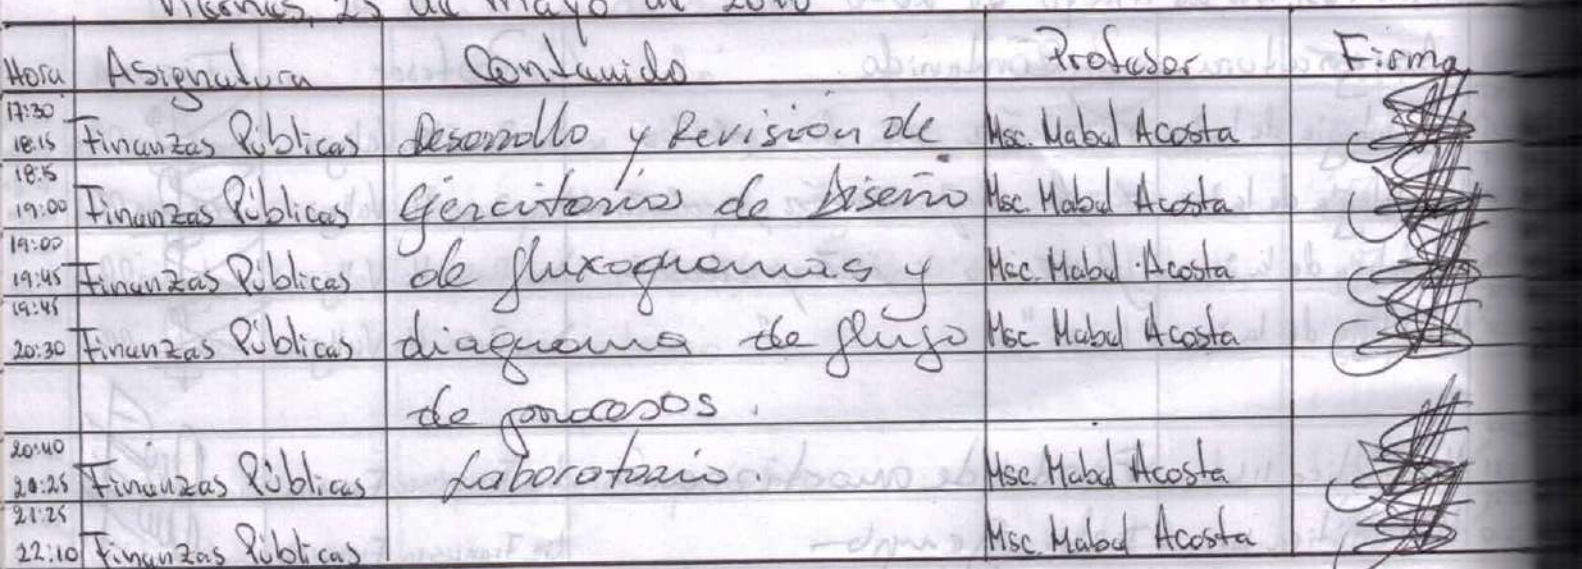 Viernes, 25 de Mayo de
Hora Asignatura Contenido Profesor Firma
17:30
18:15 Finanzas Públicas Desarrollo y Revisión de Msc. Mabel Acosta
18:15
19:00 Finanzas Públicas Ejercitario de Diseño Msc. Mabel Acosta
19:00
19:45 Finanzas Públicas de fluxogramas y Msc. Mabel Acosta
19:45
20:30 Finanzas Públicas diagrama de flujo Msc. Mabel Acosta
de procesos.
20:40
20:25 Finanzas Públicas Laboratorio. Msc. Mabel Acosta
21:25
22:10 Finanzas Públicas Msc. Mabel Acosta